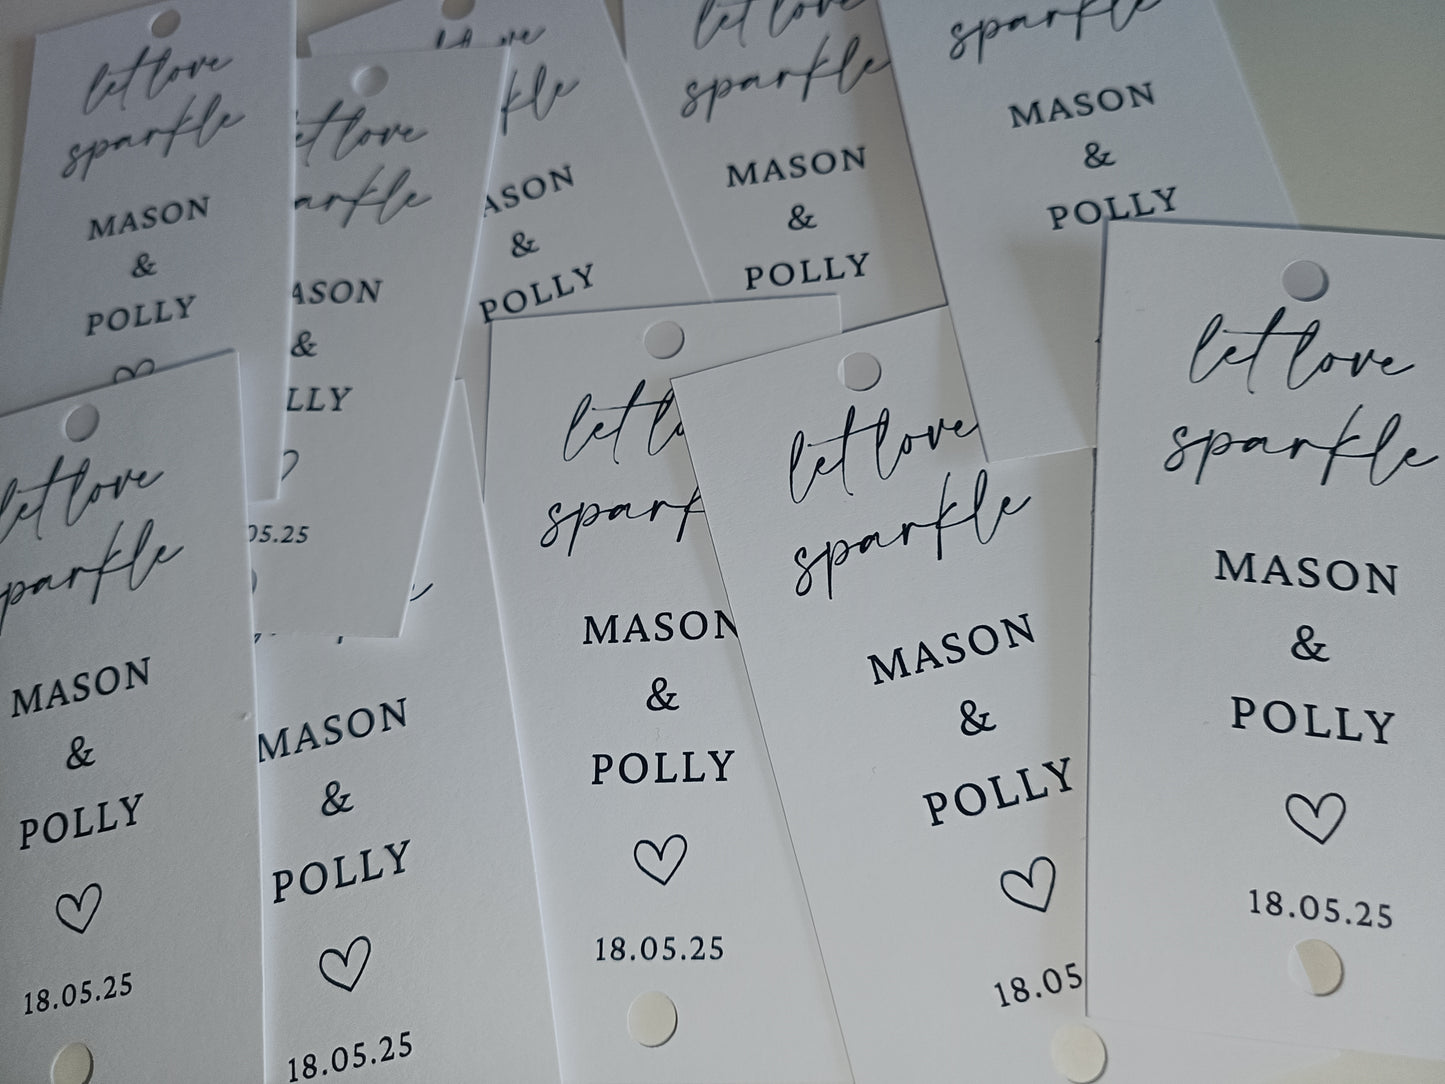 let love
sparkle
MASON
&
POLLY
let love
sparkle
MASON
&
POLLY
05.25
love
sparkle
MASON
&
POLLY
let love
sparkle
MASON
&
POLLY
sparkle
MASON
&
POLLY
let love
sparkle
MASON
&
POLLY
18.05.25
MASON
&
POLLY
18.05.25
let
spark
MASON
&
POLLY
18.05.25
let love
sparkle
MASON
&
POLLY
18.05
let love
sparkle
MASON
&
POLLY
18.05.25